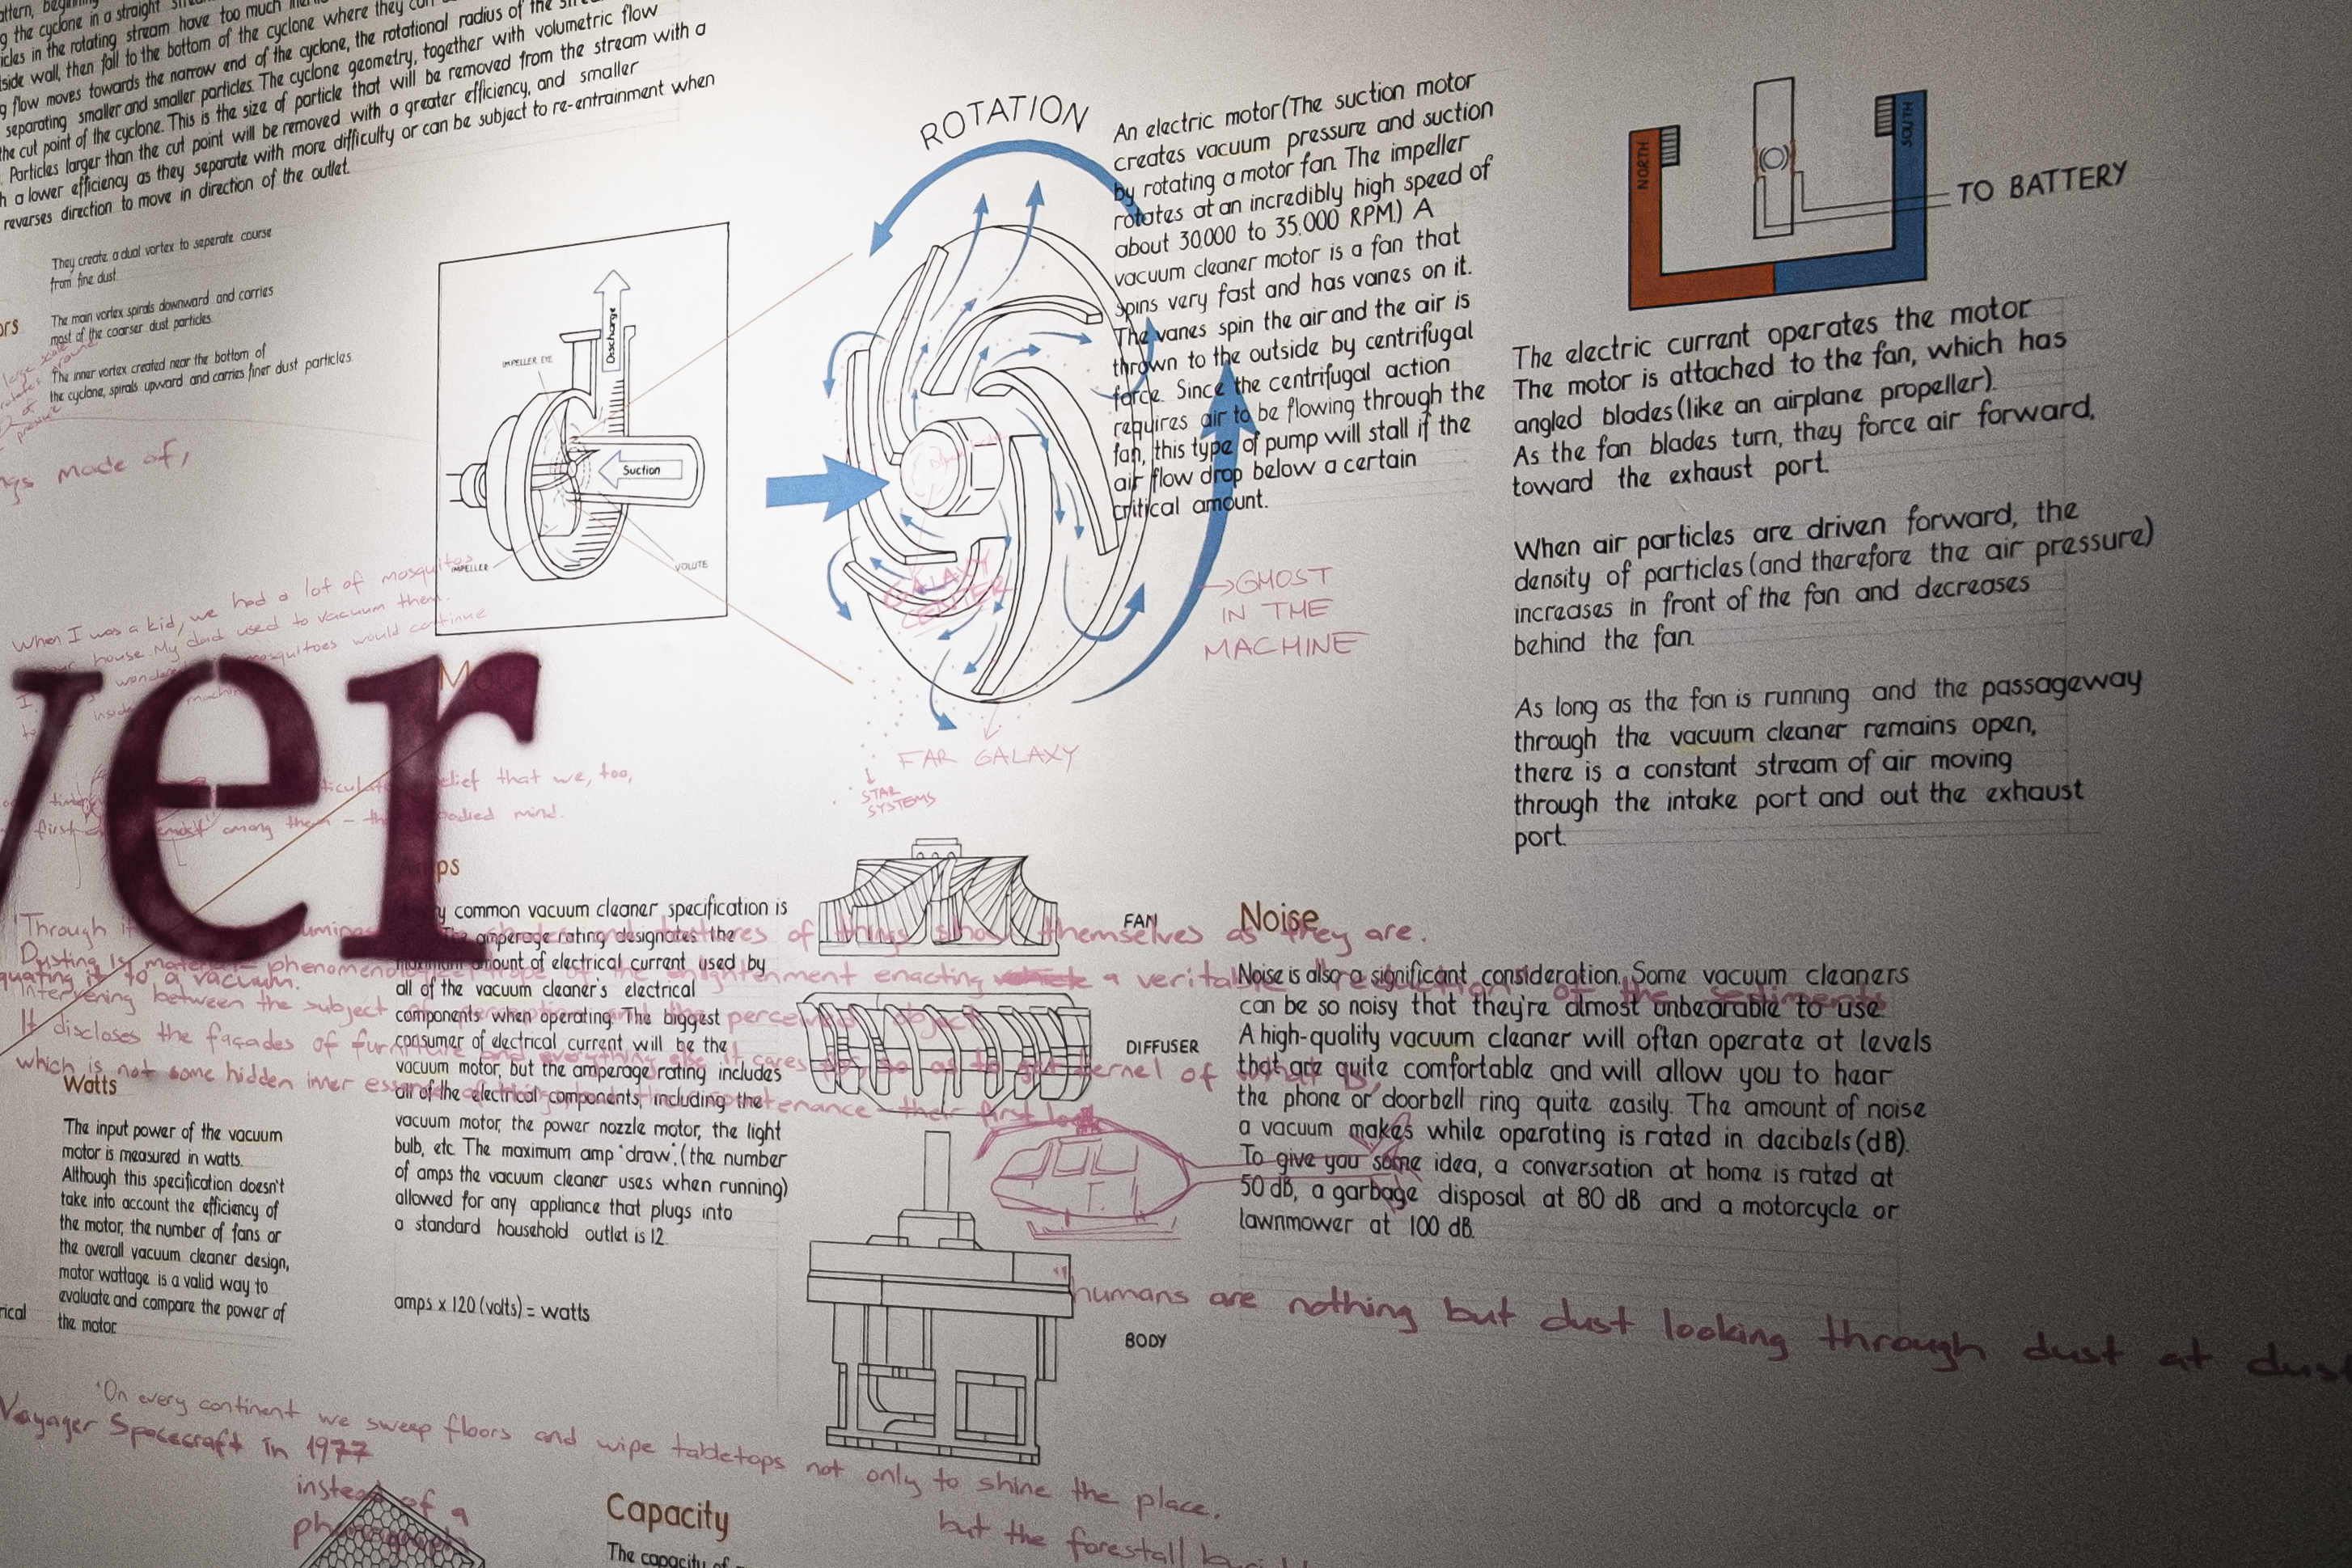 the cyclone in a straight
icles in the rotating stream have too much
side wall, then fall to the bottom of the cyclone where they can
g flow moves towards the narrow end of the cyclone, the rotational radius of the
separating smaller and smaller particles. The cyclone geometry, together with volumetric flow
the cut point of the cyclone. This is the size of particle that will be removed from the stream with a
. Particles larger than the cut point will be removed with a greater efficiency, and smaller
h a lower efficiency as they separate with more difficulty or can be subject to re-entrainment when
reverses direction to move in direction of the outlet.
They create a dual vortex to seperate course
from fine dust.
The main vortex spirals downward and carries
most of the coarser dust particles.
The inner vortex created near the bottom of
the cyclone, spirals upward and carries finer dust particles.
ors
made of,
IMPELLER EYE
Discharge
Suction
IMPELLER
VOLUTE
ROTATION
An electric motor(The suction motor
creates vacuum pressure and suction
by rotating a motor fan. The impeller
rotates at an incredibly high speed of
about 30.000 to 35.000 RPM.) A
vacuum cleaner motor is a fan that
spins very fast and has vanes on it.
The vanes spin the air and the air is
thrown to the outside by centrifugal
force. Since the centrifugal action
requires air to be flowing through the
fan, this type of pump will stall if the
air flow drop below a certain
critical amount.
GALAXY
CENTER
GHOST
IN THE
MACHINE
FAR GALAXY
STAR
SYSTEMS
NORTH
SOUTH
TO BATTERY
The electric current operates the motor.
The motor is attached to the fan, which has
angled blades(like an airplane propeller).
As the fan blades turn, they force air forward,
toward the exhaust port.
When air particles are driven forward, the
density of particles(and therefore the air pressure)
increases in front of the fan and decreases
behind the fan.
As long as the fan is running and the passageway
through the vacuum cleaner remains open,
there is a constant stream of air moving
through the intake port and out the exhaust
port.
When I was a kid, we had a lot of mosquitos
house My dad used to vacuum them.
mosquitoes would continue
ver
elief that we, too,
first among them – mind.
ps
y common vacuum cleaner specification is
The amperage rating designates the
maximum amount of electrical current used by
all of the vacuum cleaner's electrical
components when operating. The biggest
consumer of electrical current will be the
vacuum motor, but the amperage rating includes
all of the electrical components, including the
vacuum motor, the power nozzle motor, the light
bulb, etc. The maximum amp 'draw', (the number
of amps the vacuum cleaner uses when running)
allowed for any appliance that plugs into
a standard household outlet is 12.
amps x 120 (volts) = watts
"Through it of things show themselves as they are.
Dusting is material phenomenological trope of the enlightenment enacting a veritable of the sediments
quating it to a vacuum.
Intervening between the subject the perceived object
It discloses the façades of furniture and everything else it cares for kernel of what is,
which is not some hidden inner essence of things countenance their first look
Watts
The input power of the vacuum
motor is measured in watts.
Although this specification doesn't
take into account the efficiency of
the motor, the number of fans or
the overall vacuum cleaner design,
motor wattage is a valid way to
evaluate and compare the power of
the motor.
rical
FAN
DIFFUSER
BODY
Noise
Noise is also a significant consideration. Some vacuum cleaners
can be so noisy that they're almost unbearable to use.
A high-quality vacuum cleaner will often operate at levels
that are quite comfortable and will allow you to hear
the phone or doorbell ring quite easily. The amount of noise
a vacuum makes while operating is rated in decibels(dB).
To give you some idea, a conversation at home is rated at
50 dB, a garbage disposal at 80 dB and a motorcycle or
lawnmower at 100 dB.
"humans are nothing but dust looking through dust at dust
"On every continent we sweep floors and wipe tabletops not only to shine the place.
but the forestall
Voyager Spacecraft in 1977
instead of a
photograph
Capacity
The capacity of